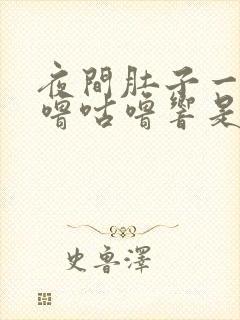 夜間肚子一
嚕咕嚕響是
史魯澤